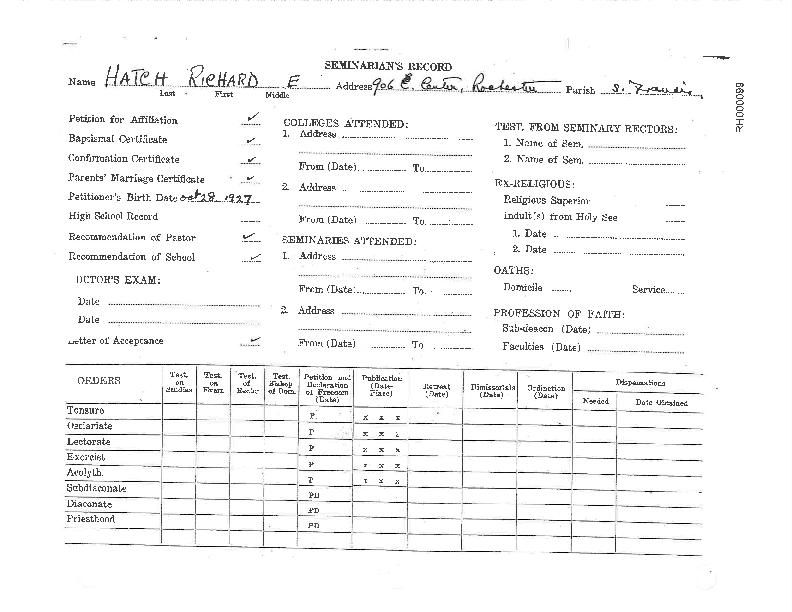 SEMINARIAN'S RECORD
Name HATCH RICHARD E Address 906 E. Center, Rochester Parish S. Francis,
Last First Middle
RH000099
Petition for Affiliation ✓
Baptismal Certificate ✓
Confirmation Certificate ✓
Parents' Marriage Certificate ✓
Petitioner's Birth Date Oct 28, 1927
High School Record
Recommendation of Pastor ✓
Recommendation of School ✓
DCTOR'S EXAM:
Date
Date
Letter of Acceptance ✓
COLLEGES ATTENDED:
1. Address
From (Date) To
2. Address
From (Date) To
SEMINARIES ATTENDED:
1. Address
From (Date) To
2. Address
From (Date) To
TEST. FROM SEMINARY RECTORS:
1. Name of Sem.
2. Name of Sem.
EX-RELIGIOUS:
Religious Superior
indult(s) from Holy See
1. Date
2. Date
OATHS:
Domicile Service
PROFESSION OF FAITH:
Sub-deacon (Date)
Faculties (Date)
ORDERS Test. on Studies Test. on Exam. Test. of Rector Test. Bishop of Dom. Petition and Declaration of Freedom (Date) Publication (Date-Place) Retreat (Date) Dimissorials (Date) Ordination (Date) Dispensations
Needed Date Obtained
Tonsure P x x x
Ostiariate P x x x
Lectorate P x x x
Exorcist P x x x
Acolyth P x x x
Subdiaconate PD
Diaconate PD
Priesthood PD